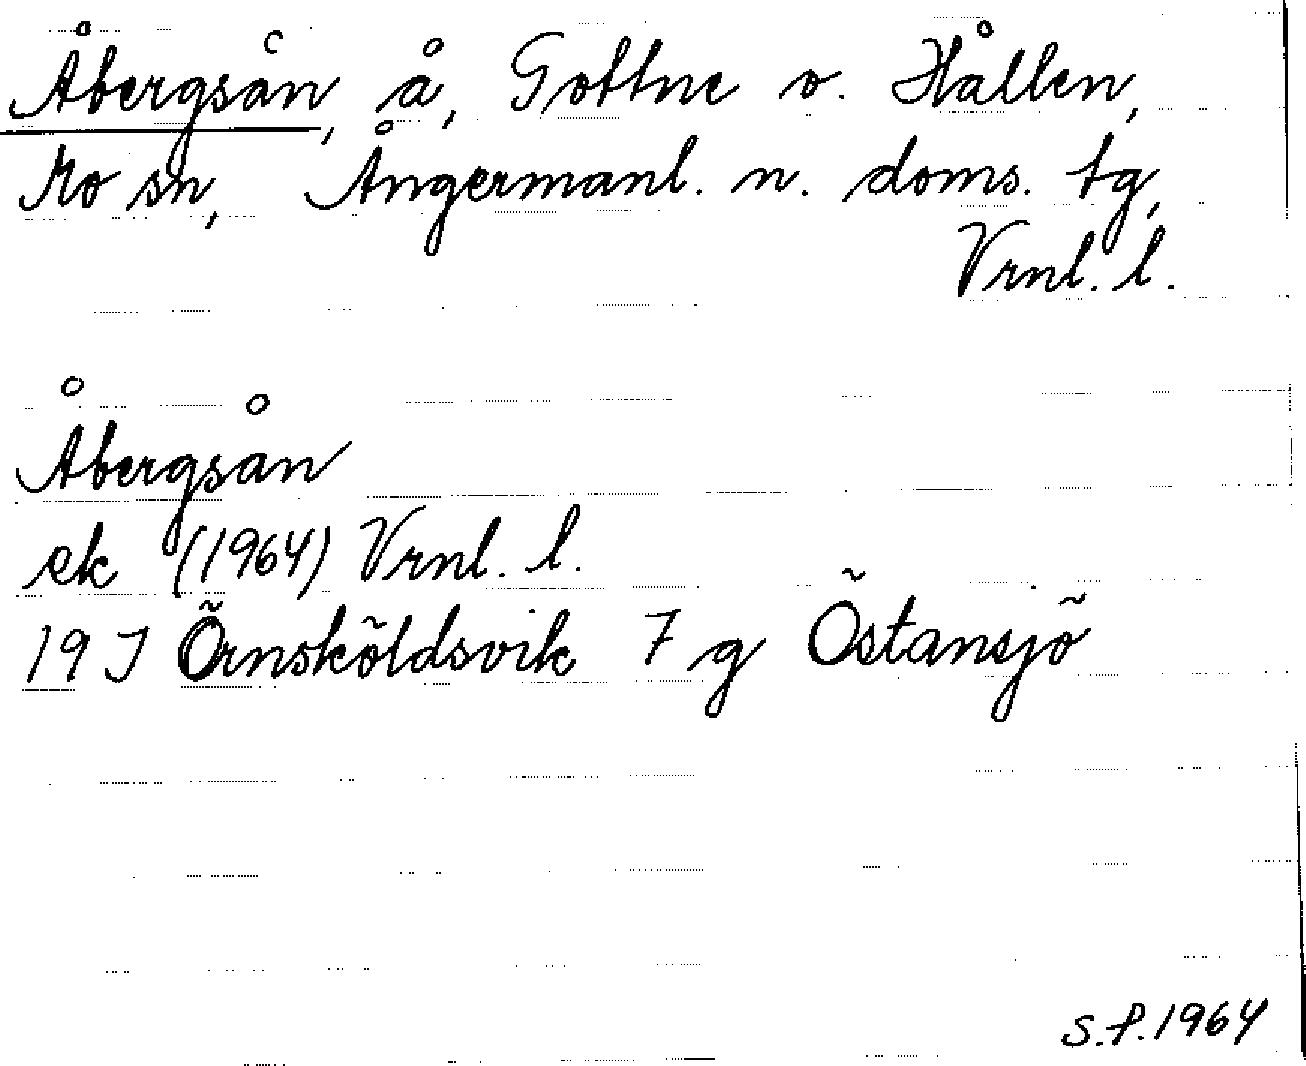 Åbergsån, å, Gottne o. Hållen,
Mo sn, Ångermanl. n. doms. tg,
Vrnl. l.
Åbergsån
ek (1964) Vrnl. l.
19 J Örnsköldsvik 7 g Östansjö
S.F. 1964